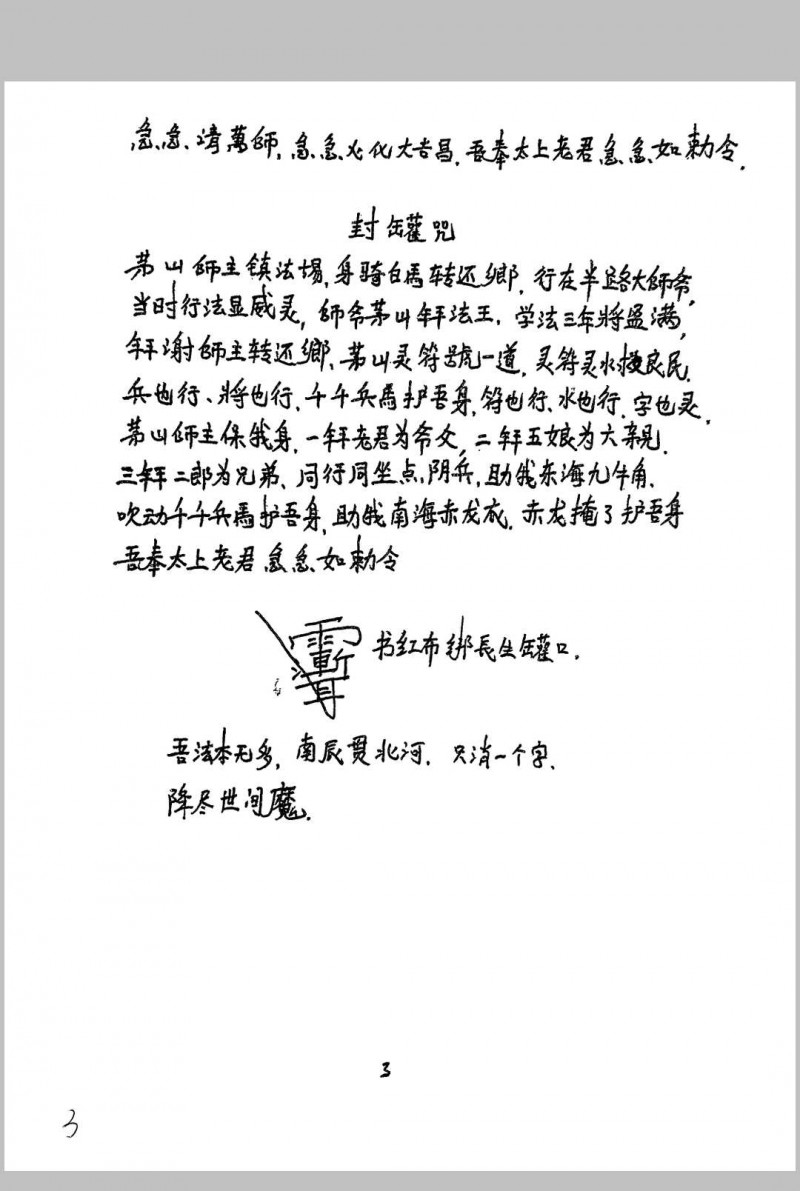 急急请萬師,急急火化大吉昌.吾奉太上老君急急如勅令.
封罐咒
茅山師主镇法場,身骑白馬转还鄉,行在半路大師爷,
当时行法显威灵,師爷茅山拜法王.学法三年將盈满,
拜谢師主转还鄉、茅山灵符號一道,灵符灵水授良民.
兵也行、將也行,千千兵馬护吾身,符也行、水也行,字也灵.
茅山師主保我身,一拜老君为爷父,二拜五娘为六亲.
三拜二郎为兄弟、同行同坐点阴兵,助我东海九牛角.
吹动千千兵馬护吾身,助我南海赤龙衣.赤龙掩了护吾身
吾奉太上老君急急如勅令
书红布绑長生罐口.
吾法本无多,南辰贯北河.只消一个字.
降尽世间魔.
3
3